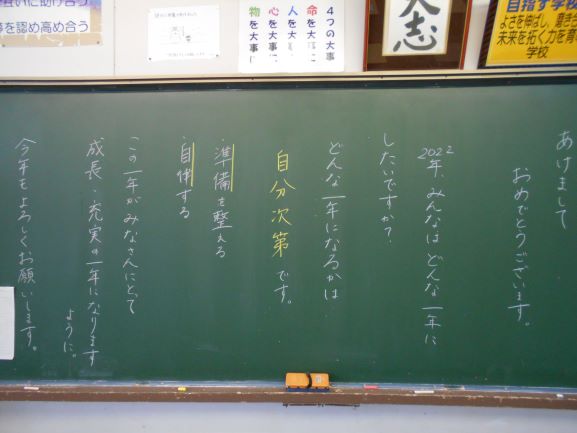 互いに助け合う
を認め高め合う
4つの大事
命を大事に
人を大事に
心を大事に
物を大事に
大志
目指す学校
よさを伸ばし、磨き
未来を拓く力を育
学校
あけまして
おめでとうございます。
2022年、みんなはどんな一年に
したいですか?
どんな一年になるかは
自分次第です。
・準備を整える
・自伸する
この一年がみなさんにとって
成長・充実の一年になります
ように。
今年もよろしくお願いします。